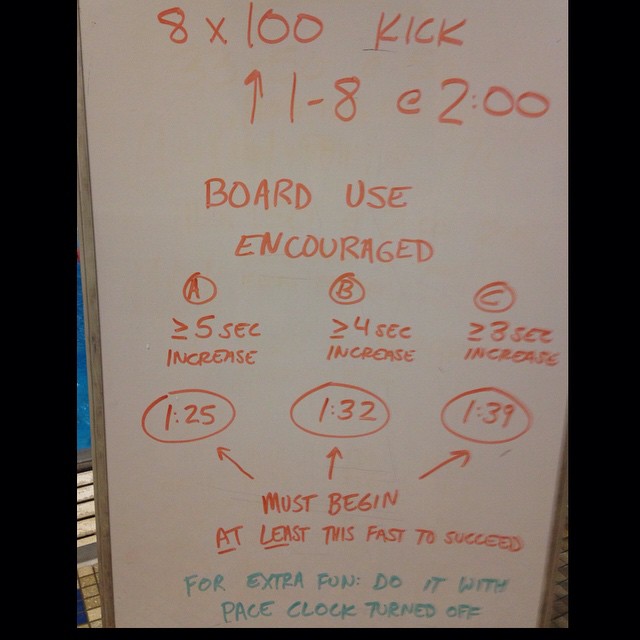 8 x 100 KICK
↑ 1-8 @ 2:00
BOARD USE
ENCOURAGED
A B C
≥5 SEC INCREASE ≥4 SEC INCREASE ≥3 SEC INCREASE
1:25 1:32 1:39
MUST BEGIN
AT LEAST THIS FAST TO SUCCEED
FOR EXTRA FUN: DO IT WITH
PACE CLOCK TURNED OFF